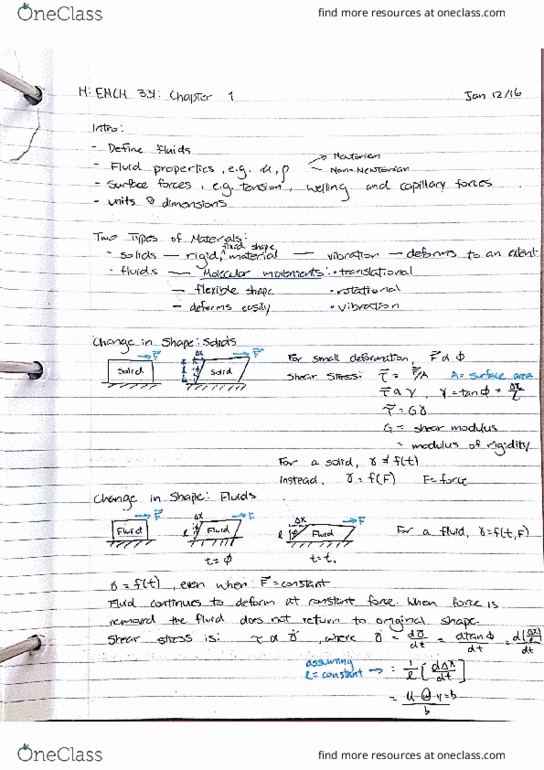 OneClass
find more resources at oneclass.com
H: ENCH 341: Chapter 1 Jan 12/16
Intro:
- Define fluids
- Fluid properties, e.g. μ, ρ → Newtonian
→ Non-Newtonian
- Surface forces, e.g. tension, welling and capillary forces
- units & dimensions
Two Types of Materials:
fluid shape
· solids — rigid, material — vibration — deforms to an extent
· fluids — Molecular movements: · translational
— flexible shape · rotational
— deforms easily · vibration
Change in Shape: Solids
F Δx F
Solid l ϕ Solid
For small deformation, F α ϕ
Shear stress: τ = F/A A = surface area
τ α γ, γ = tanϕ = Δx/l
τ = Gγ
G = shear modulus
= modulus of rigidity
For a solid, γ ≠ f(t)
Instead, γ = f(F) F = force
Change in Shape: Fluids
F Δx F Δx F
Fluid l Fluid l ϕ Fluid
For a fluid, γ = f(t,F)
t = ϕ t = t,
γ = f(t), even when F = constant
Fluid continues to deform at constant force. When force is
removed the fluid does not return to original shape.
Shear stress is: τ α γ̇, where γ̇ = dγ/dt = dtanϕ/dt = d(Δx/l)/dt
assuming
l = constant → = 1/l [dΔx/dt]
= u @ y=b / b
OneClass
find more resources at oneclass.com